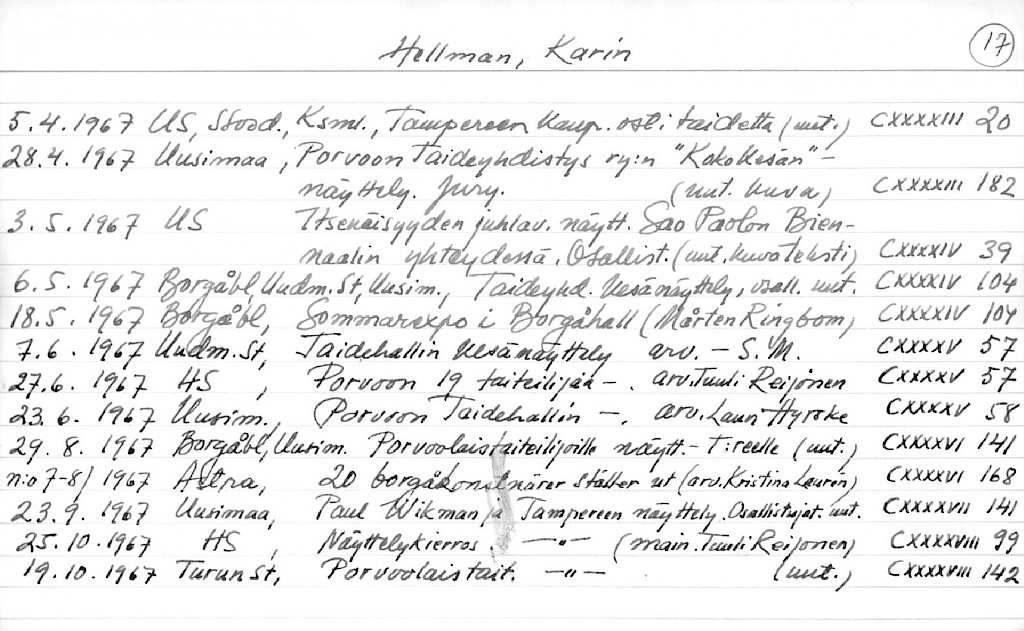 Hellman, Karin 17
5.4.1967 US, Ssosd., Ksml., Tampereen kaup. osti taidetta (uut.) CXXXXIII 20
28.4.1967 Uusimaa, Porvoon Taideyhdistys ry:n "Koko Kesän"-
näyttely. Jury. (uut. kuva) CXXXXIII 182
3.5.1967 US Itsenäisyyden juhlav. näytt. Sao Paolon Bien-
naalin yhteydessä. Osallist. (uut. kuvateksti) CXXXXIV 39
6.5.1967 Borgåbl, Uudm.St, Uusim., Taideyhd. Kesänäyttely, osall. uut. CXXXXIV 104
18.5.1967 Borgåbl, Sommarexpo i Borgåhall (Mårten Ringbom) CXXXXIV 104
7.6.1967 Uudm.St, Taidehallin Kesänäyttely arv. - S.M. CXXXXV 57
27.6.1967 HS, Porvoon 19 taiteilijaa -. arv. Tuuli Reijonen CXXXXV 57
23.6.1967 Uusim., Porvoon Taidehallin -. arv. Lauri Hyrske CXXXXV 58
29.8.1967 Borgåbl, Uusim. Porvoolaistaiteilijoille näytt.- T:reelle (uut.) CXXXXVI 141
n:o 7-8/1967 Astra, 20 borgåkonstnärer ställer ut (arv. Kristina Laurén) CXXXXVI 168
23.9.1967 Uusimaa, Paul Wikman ja Tampereen näyttely. Osallistujat. uut. CXXXXVII 141
25.10.1967 HS, Näyttelykierros. -"- (main. Tuuli Reijonen) CXXXXVIII 99
19.10.1967 TurunSt, Porvoolaistait. -"- (uut.) CXXXXVIII 142